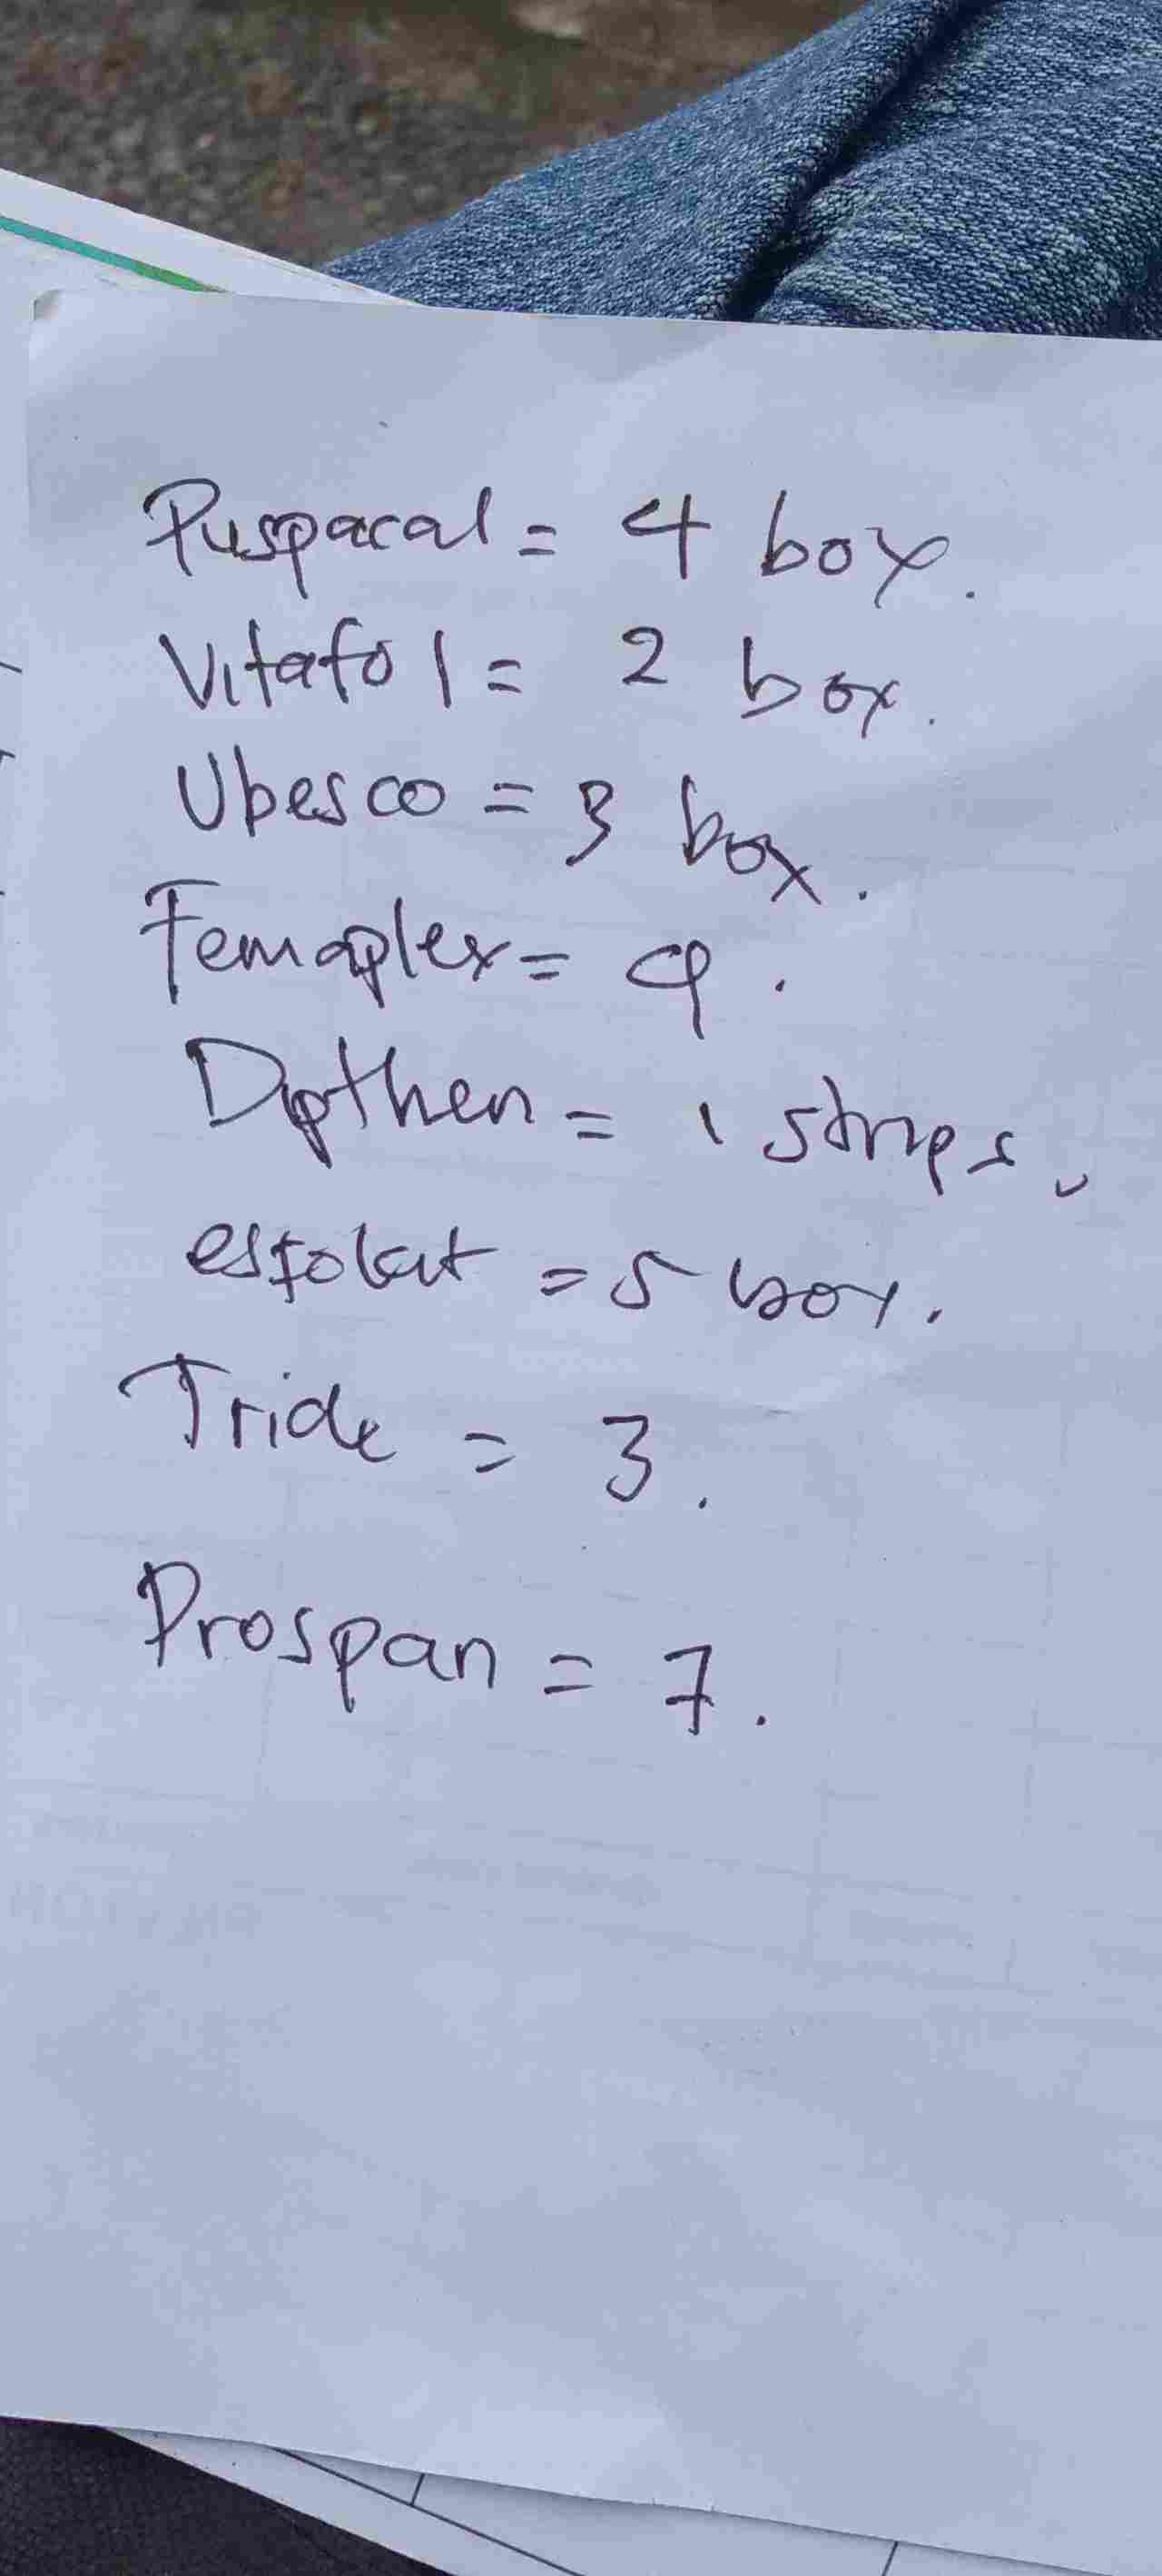 Puspacal = 4 box.
Vitafol = 2 box.
Ubesco = 3 box.
Femaplex = 4.
Dipthen = 1 strips,
esfolat = 5 box.
Tride = 3.
Prospan = 7.